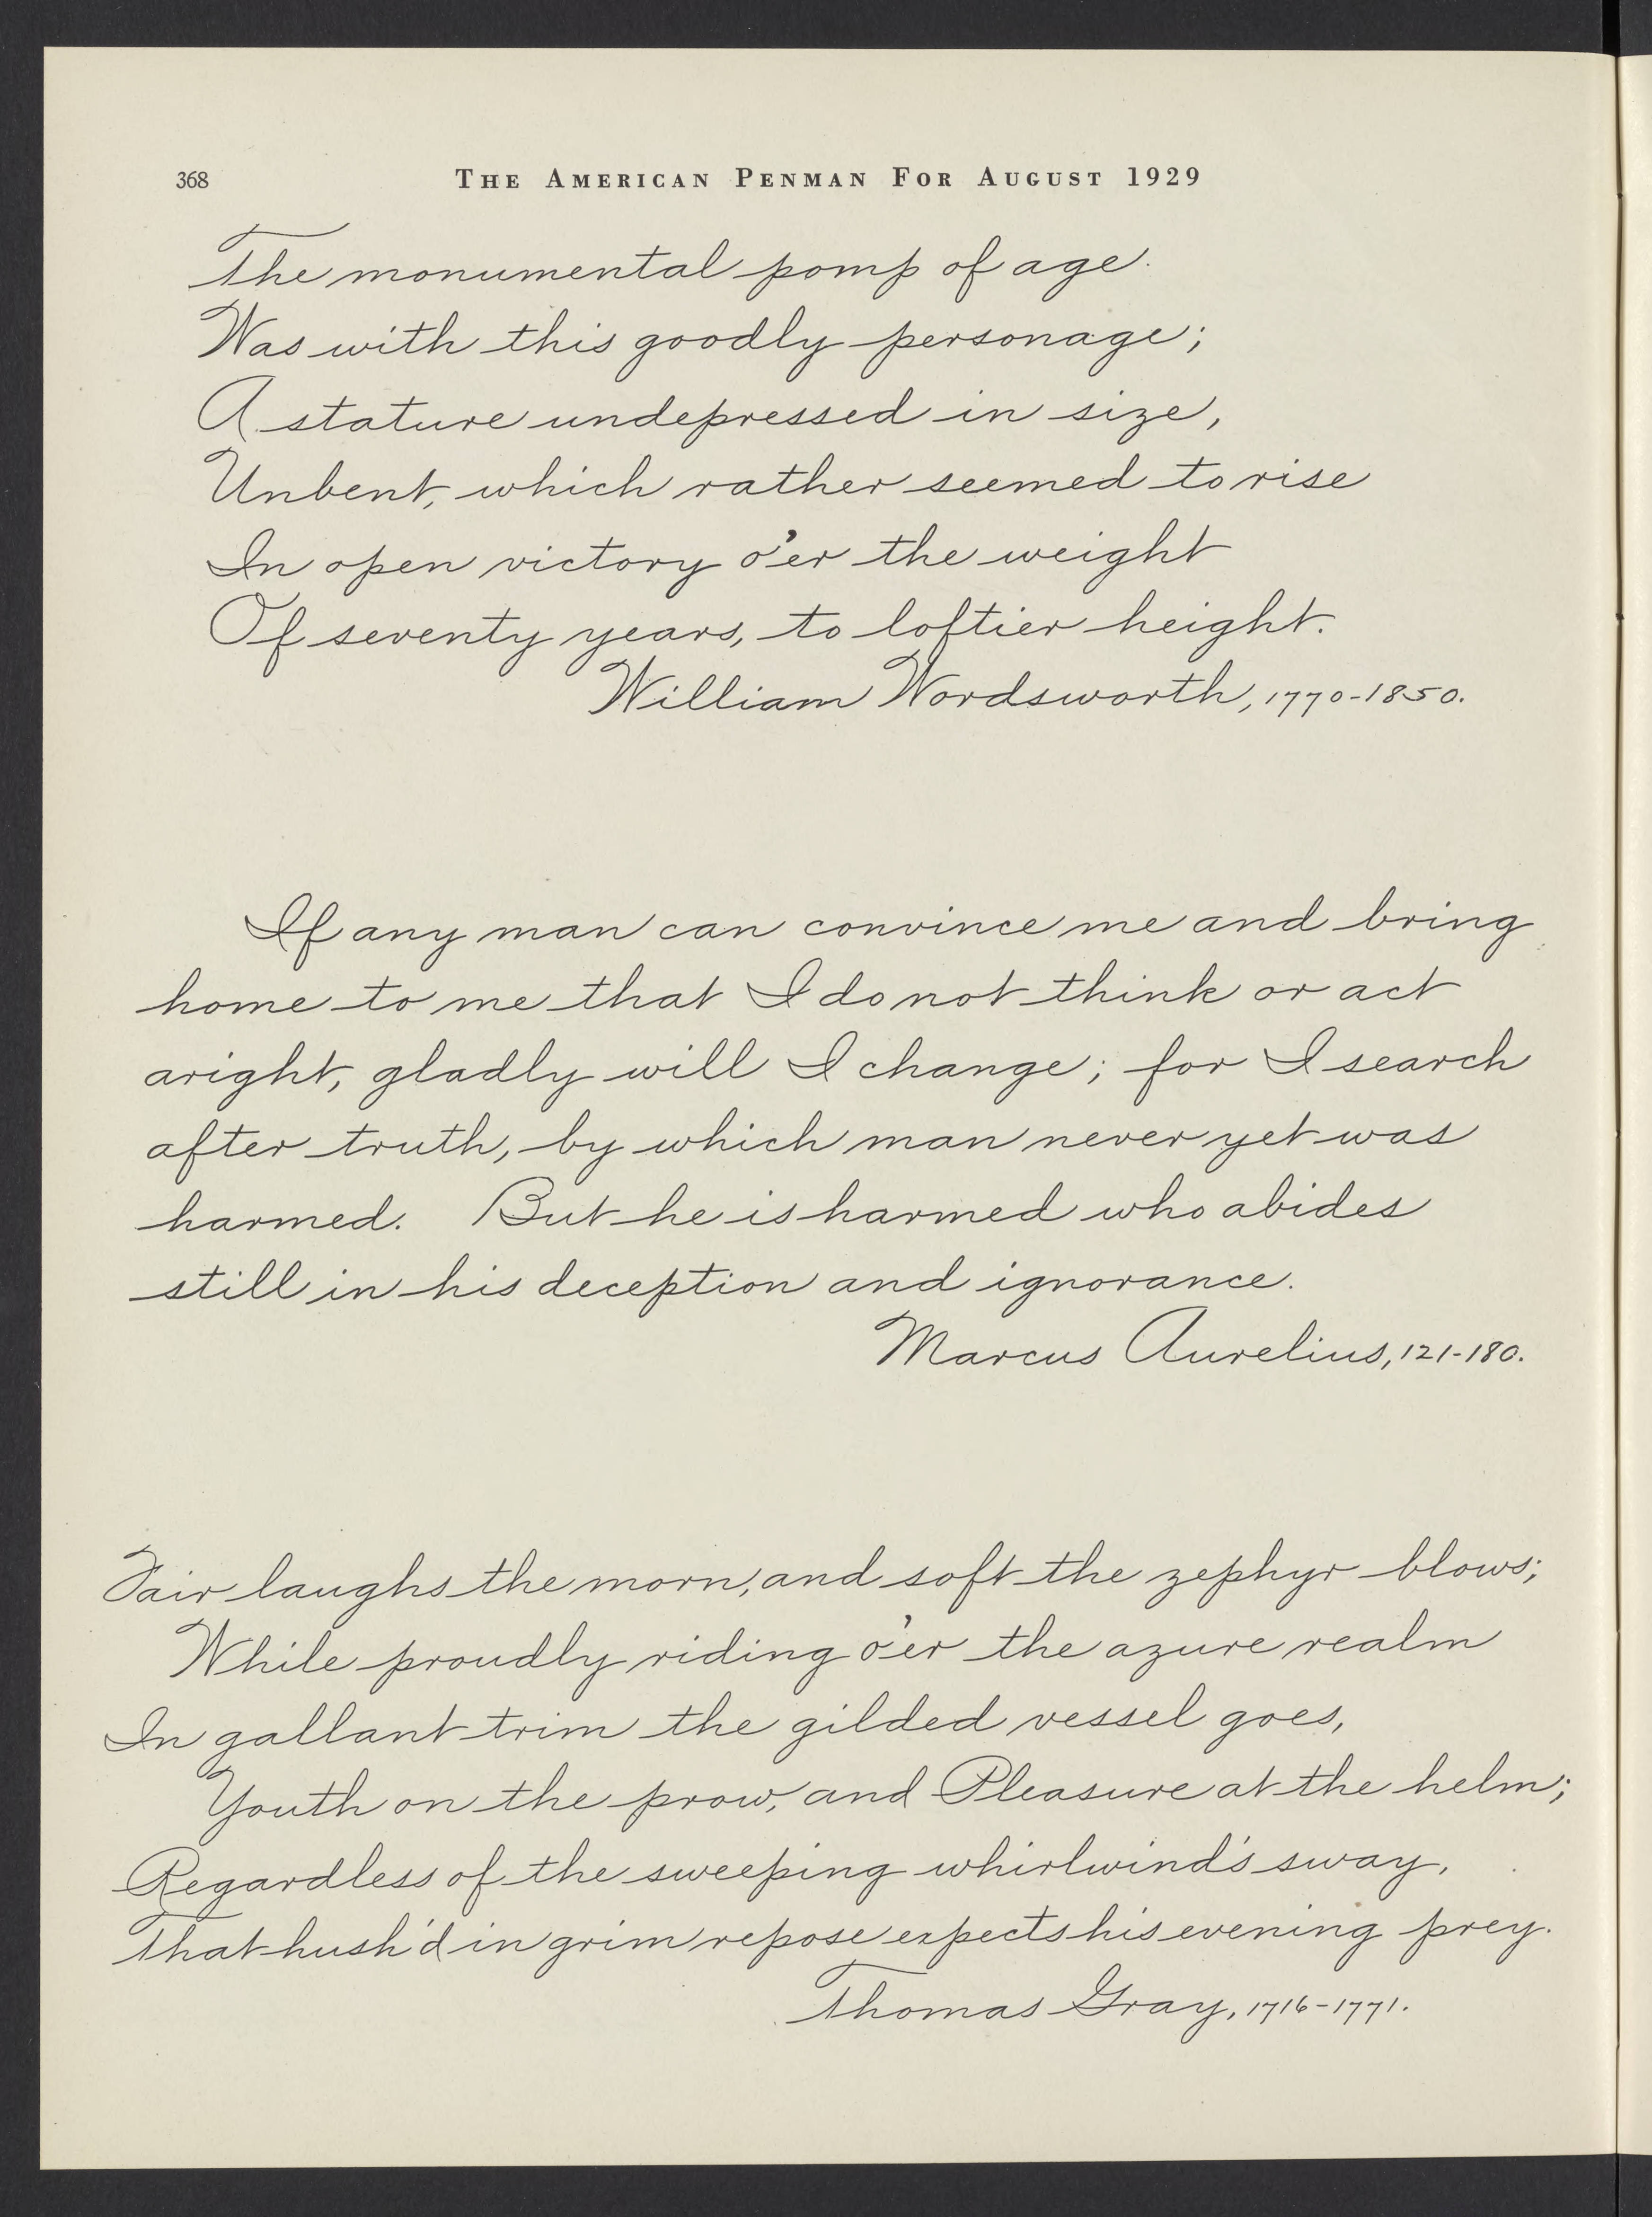 368
THE AMERICAN PENMAN FOR AUGUST 1929
The monumental pomp of age
Was with this goodly personage;
A stature undepressed in size,
Unbent, which rather seemed to rise
In open victory o'er the weight
Of seventy years, to loftier height.
William Wordsworth, 1770-1850.
If any man can convince me and bring
home to me that I do not think or act
aright, gladly will I change; for I search
after truth, by which man never yet was
harmed. But he is harmed who abides
still in his deception and ignorance.
Marcus Aurelius, 121-180.
Fair laughs the morn, and soft the zephyr blows;
While proudly riding o'er the azure realm
In gallant trim the gilded vessel goes,
Youth on the prow, and Pleasure at the helm;
Regardless of the sweeping whirlwind's sway,
That hush'd in grim repose expects his evening prey.
Thomas Gray, 1716-1771.